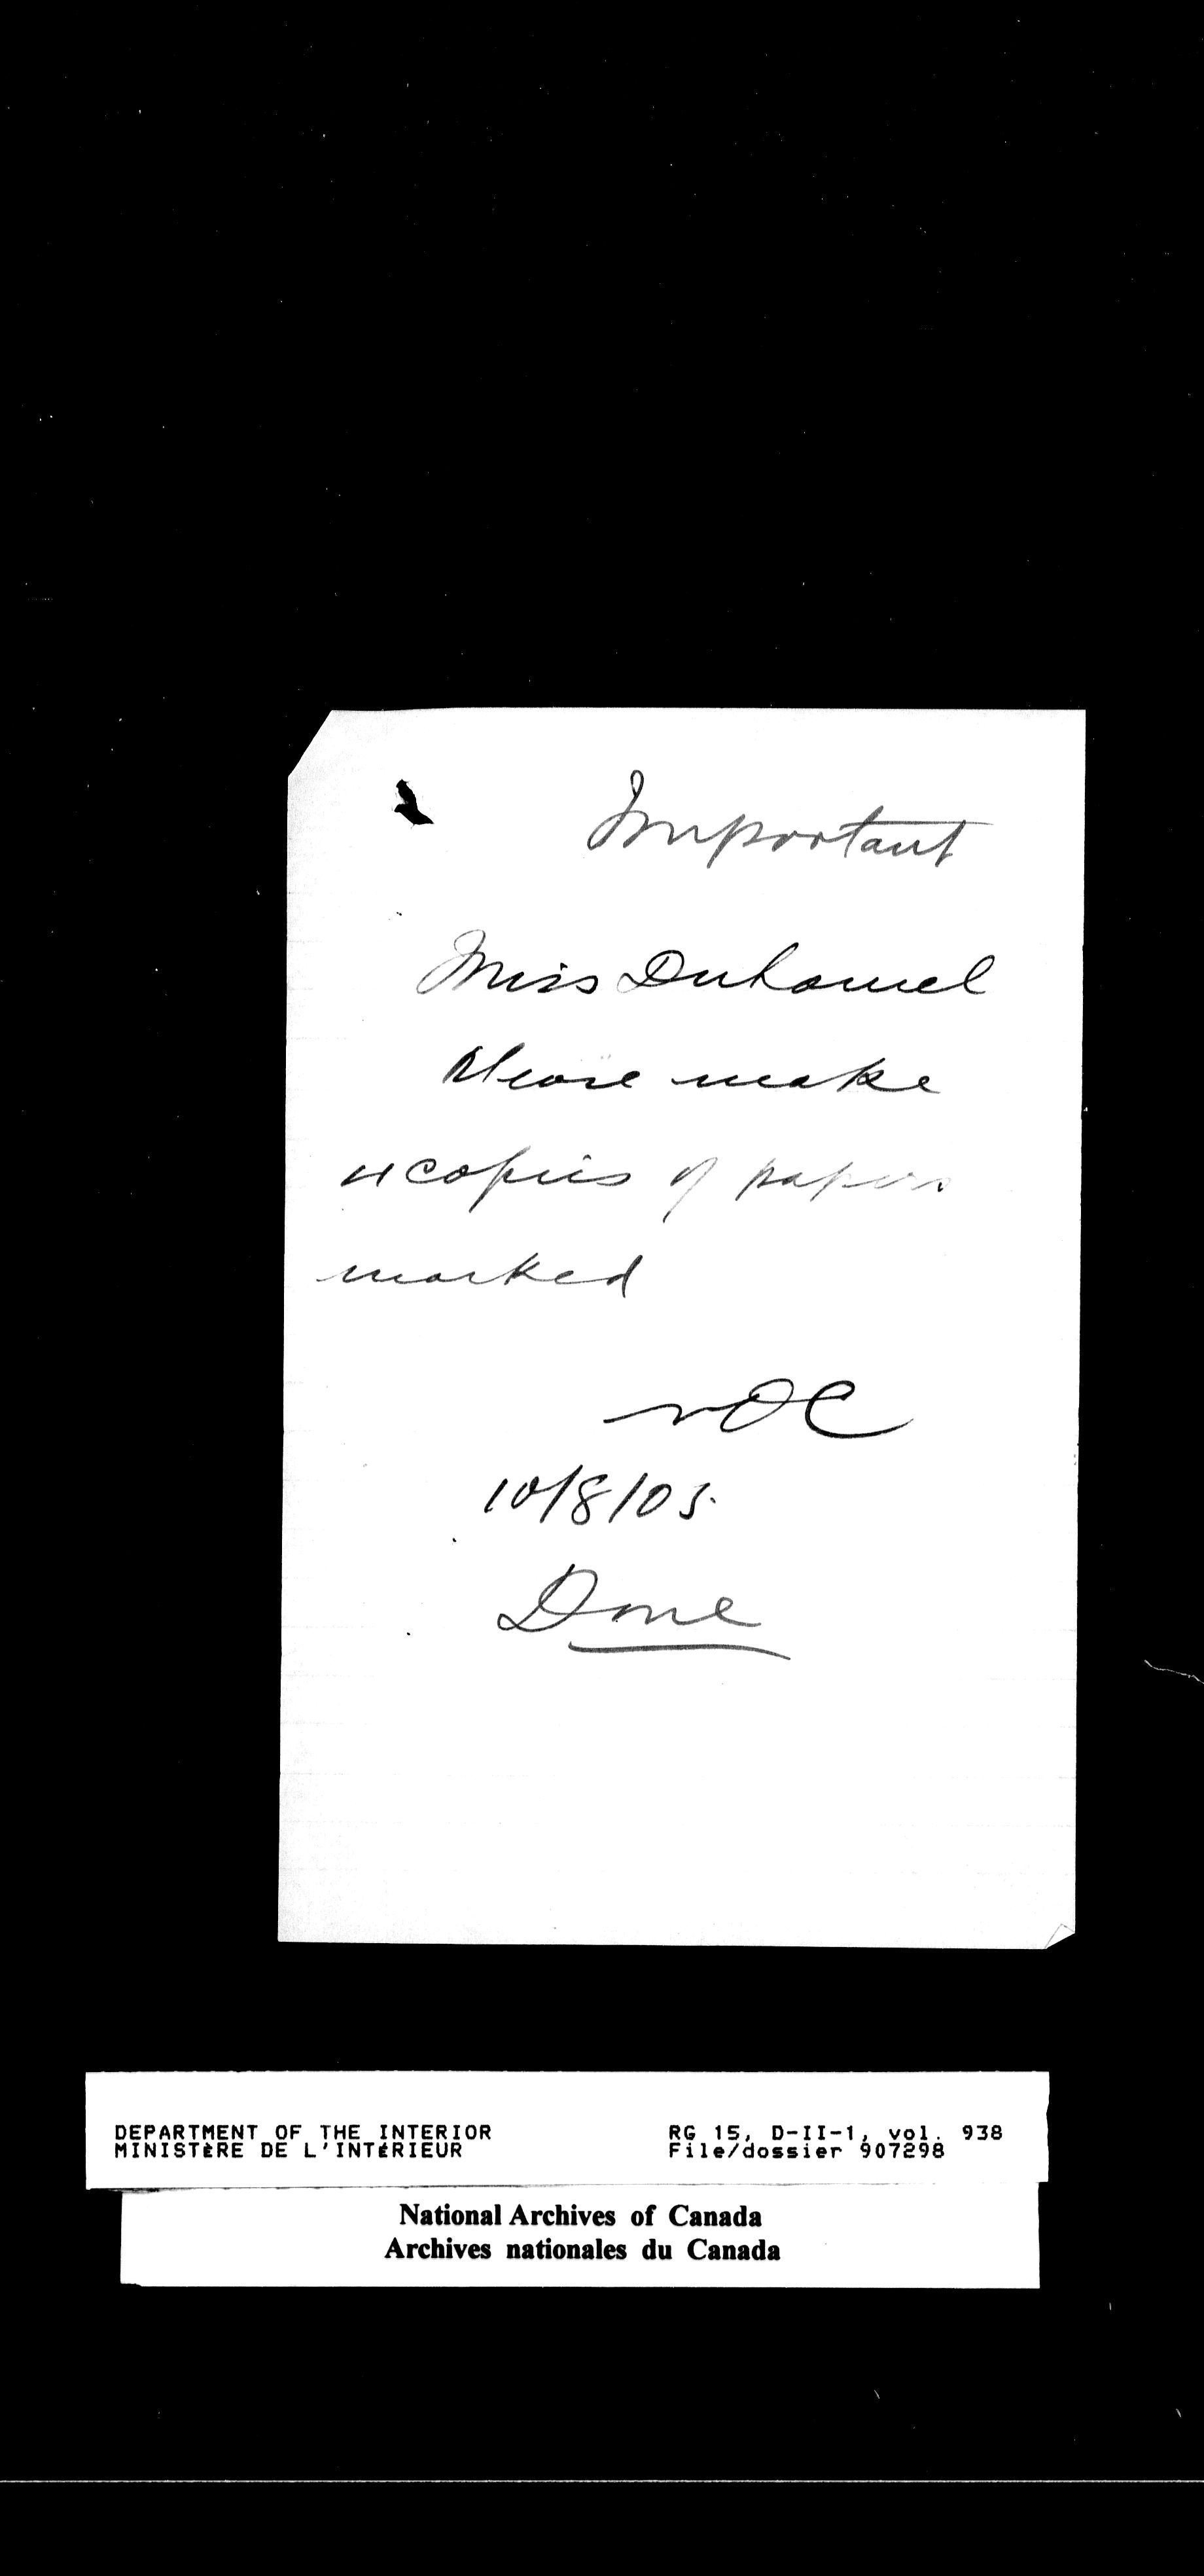 Important
Miss Duhamel
Please make
4 copies of papers
marked
10/8/05.
Done
DEPARTMENT OF THE INTERIOR
MINISTÈRE DE L'INTÉRIEUR
RG 15, D-II-1, vol. 938
File/dossier 907298
National Archives of Canada
Archives nationales du Canada